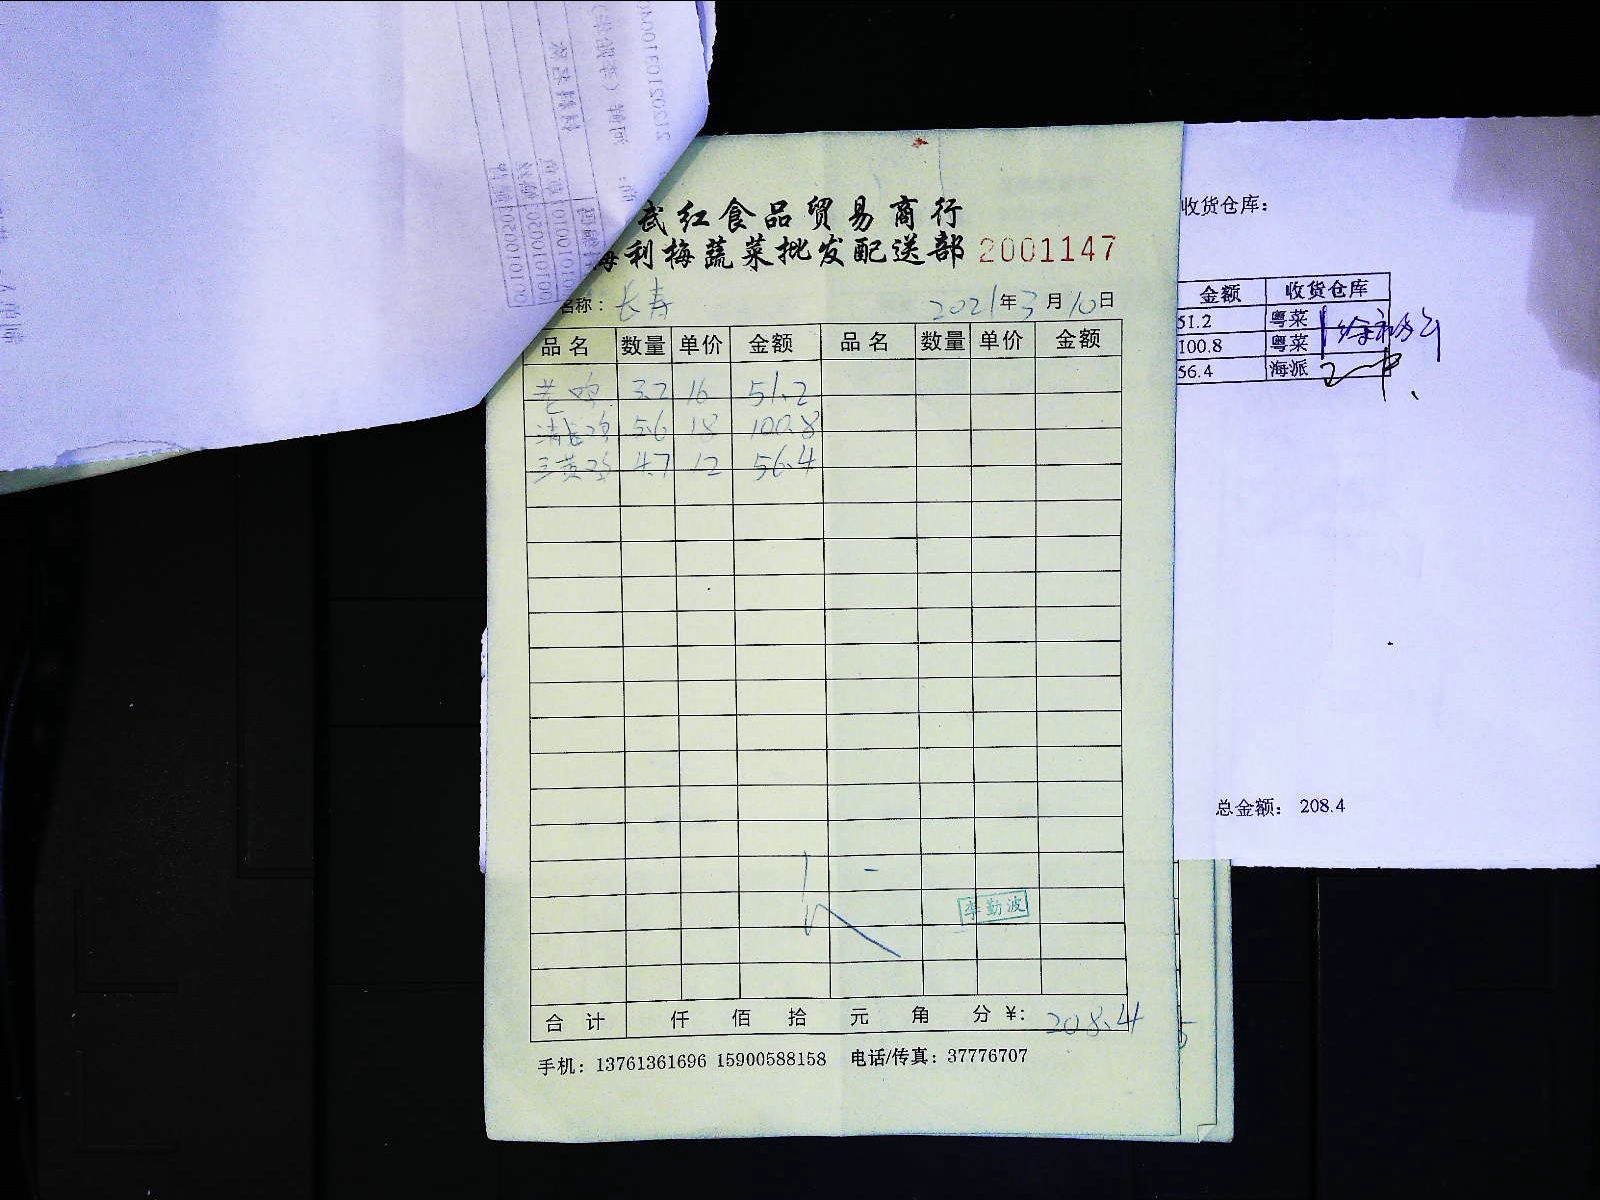 武红食品贸易商行
海利梅蔬菜批发配送部 2001147
名称：长寿 2021年3月10日
品名 数量 单价 金额 品名 数量 单价 金额
老鸡 3.2 16 51.2
清远鸡 5.6 18 100.8
三黄鸡 4.7 12 56.4
李勤波
合计 仟 佰 拾 元 角 分 ¥: 208.4
手机：13761361696 15900588158 电话/传真：37776707
收货仓库：
金额 收货仓库
51.2 粤菜
100.8 粤菜
56.4 海派
总金额： 208.4